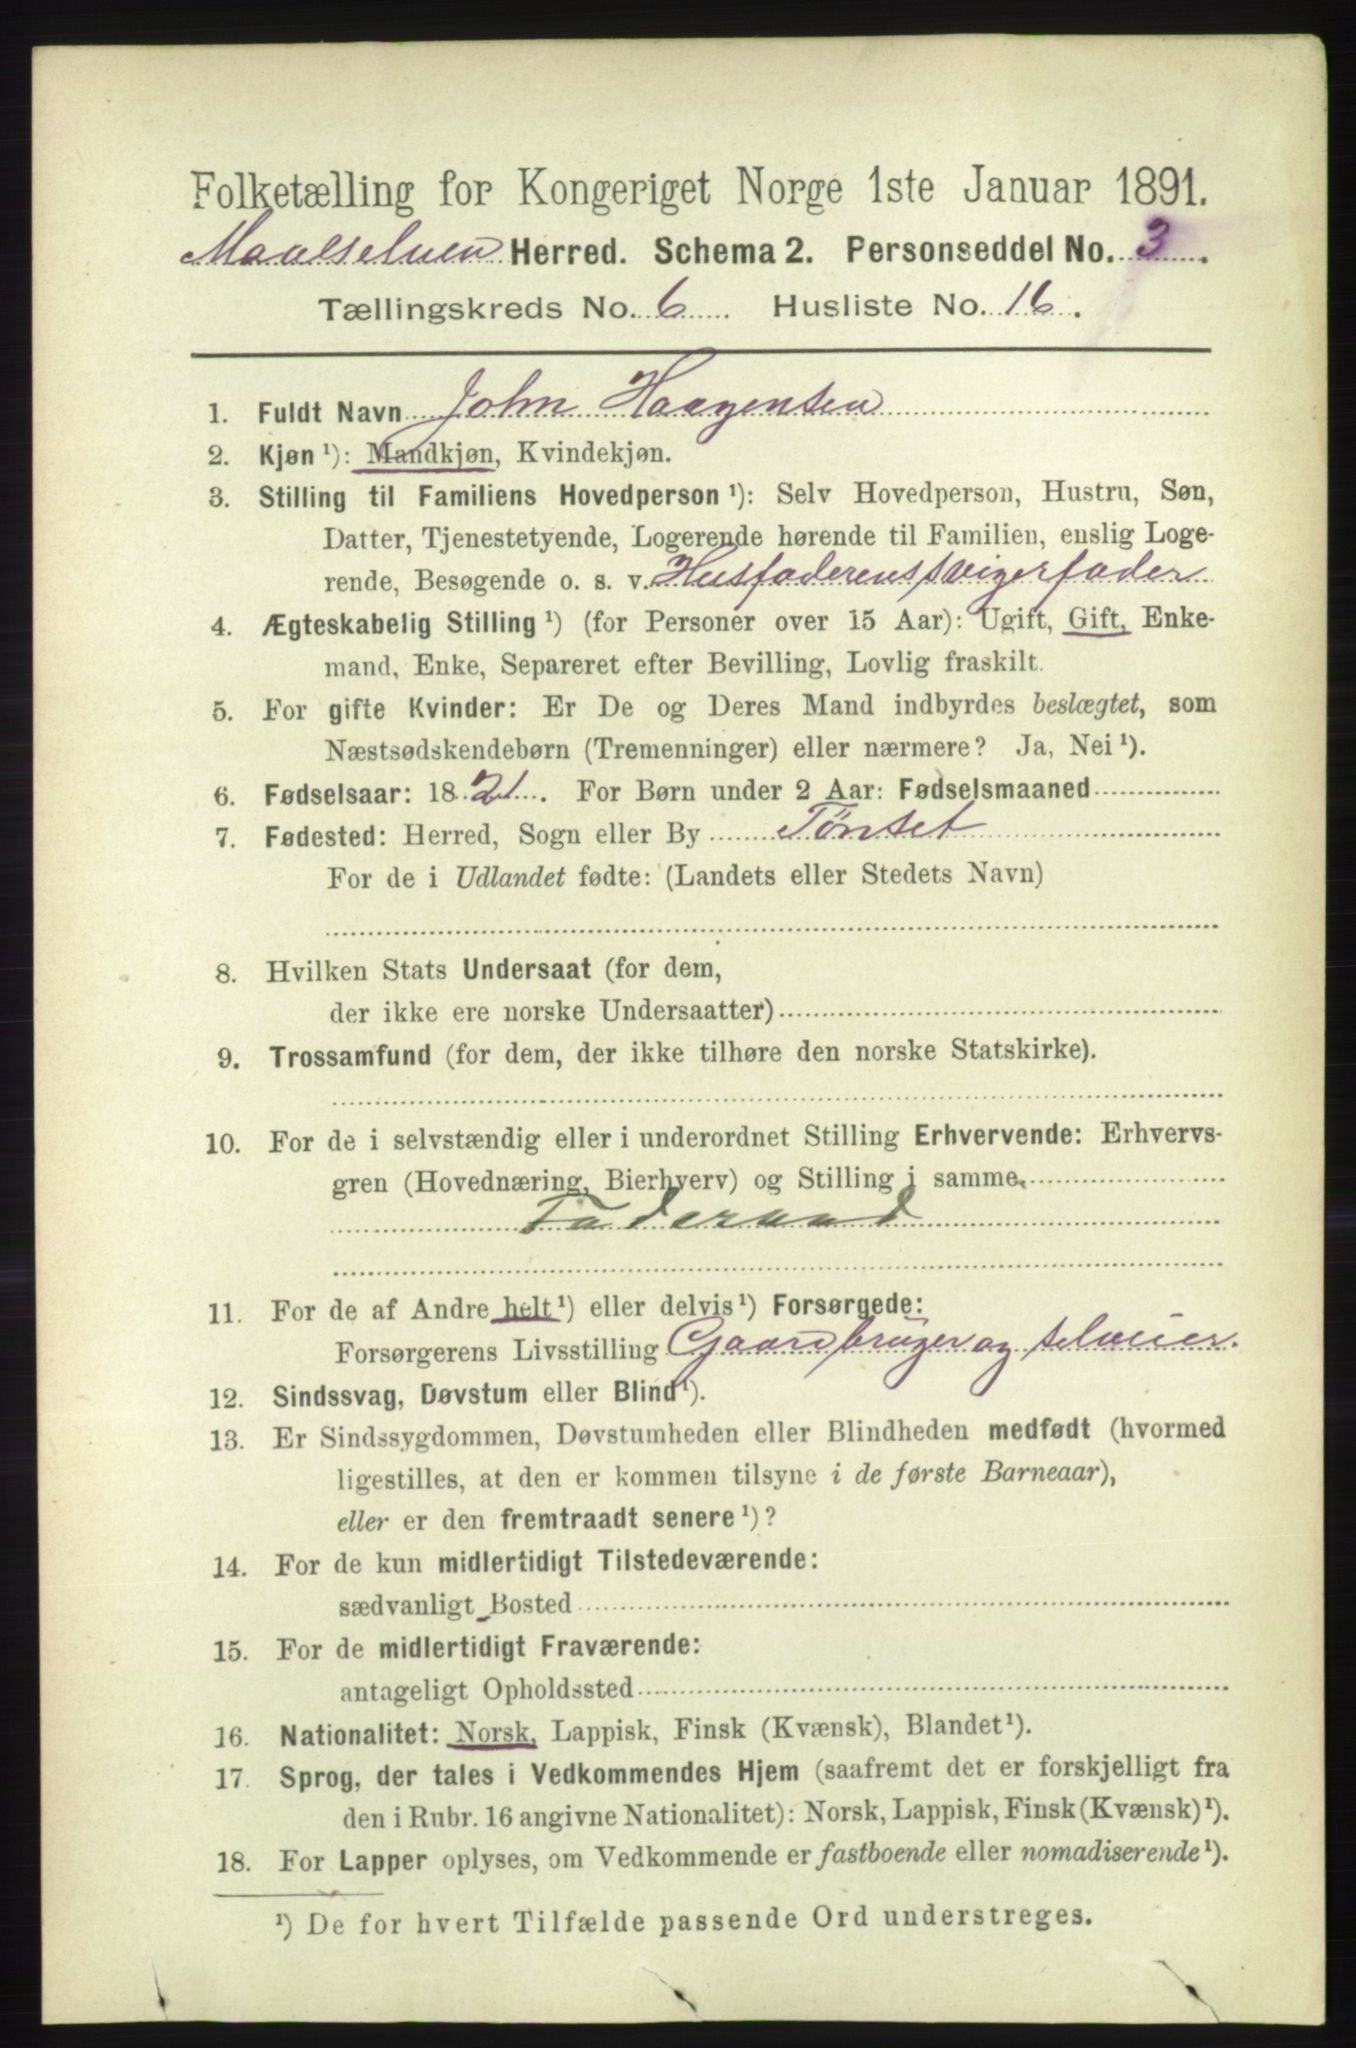 Folketælling for Kongeriget Norge 1ste Januar 1891.
Maalselven Herred. Schema 2. Personseddel No. 3.
Tællingskreds No. 6. Husliste No. 16.
1. Fuldt Navn John Haagensen
2. Kjøn ¹): Mandkjøn, Kvindekjøn.
3. Stilling til Familiens Hovedperson ¹): Selv Hovedperson, Hustru, Søn,
Datter, Tjenestetyende, Logerende hørende til Familien, enslig Loge-
rende, Besøgende o. s. v. Husfaderens svigerfader
4. Ægteskabelig Stilling ¹) (for Personer over 15 Aar): Ugift, Gift, Enke-
mand, Enke, Separeret efter Bevilling, Lovlig fraskilt.
5. For gifte Kvinder: Er De og Deres Mand indbyrdes beslægtet, som
Næstsødskendebørn (Tremenninger) eller nærmere? Ja, Nei ¹).
6. Fødselsaar: 1821. For Børn under 2 Aar: Fødselsmaaned
7. Fødested: Herred, Sogn eller By Tönset
For de i Udlandet fødte: (Landets eller Stedets Navn)
8. Hvilken Stats Undersaat (for dem,
der ikke ere norske Undersaatter)
9. Trossamfund (for dem, der ikke tilhøre den norske Statskirke).
10. For de i selvstændig eller i underordnet Stilling Erhvervende: Erhvervs-
gren (Hovednæring, Bierhverv) og Stilling i samme.
Föderaad
11. For de af Andre helt ¹) eller delvis ¹) Forsørgede:
Forsørgerens Livsstilling Gaardbruger og selveier.
12. Sindssvag, Døvstum eller Blind ¹).
13. Er Sindssygdommen, Døvstumheden eller Blindheden medfødt (hvormed
ligestilles, at den er kommen tilsyne i de første Barneaar),
eller er den fremtraadt senere ¹)?
14. For de kun midlertidigt Tilstedeværende:
sædvanligt Bosted
15. For de midlertidigt Fraværende:
antageligt Opholdssted
16. Nationalitet: Norsk, Lappisk, Finsk (Kvænsk), Blandet ¹).
17. Sprog, der tales i Vedkommendes Hjem (saafremt det er forskjelligt fra
den i Rubr. 16 angivne Nationalitet): Norsk, Lappisk, Finsk (Kvænsk) ¹).
18. For Lapper oplyses, om Vedkommende er fastboende eller nomadiserende ¹).
¹) De for hvert Tilfælde passende Ord understreges.